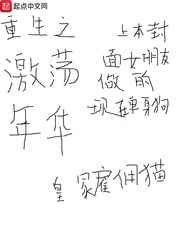 起点中文网
重生之
激荡
年华
上本封
面女朋友
做的
现单身狗
皇家雇佣猫